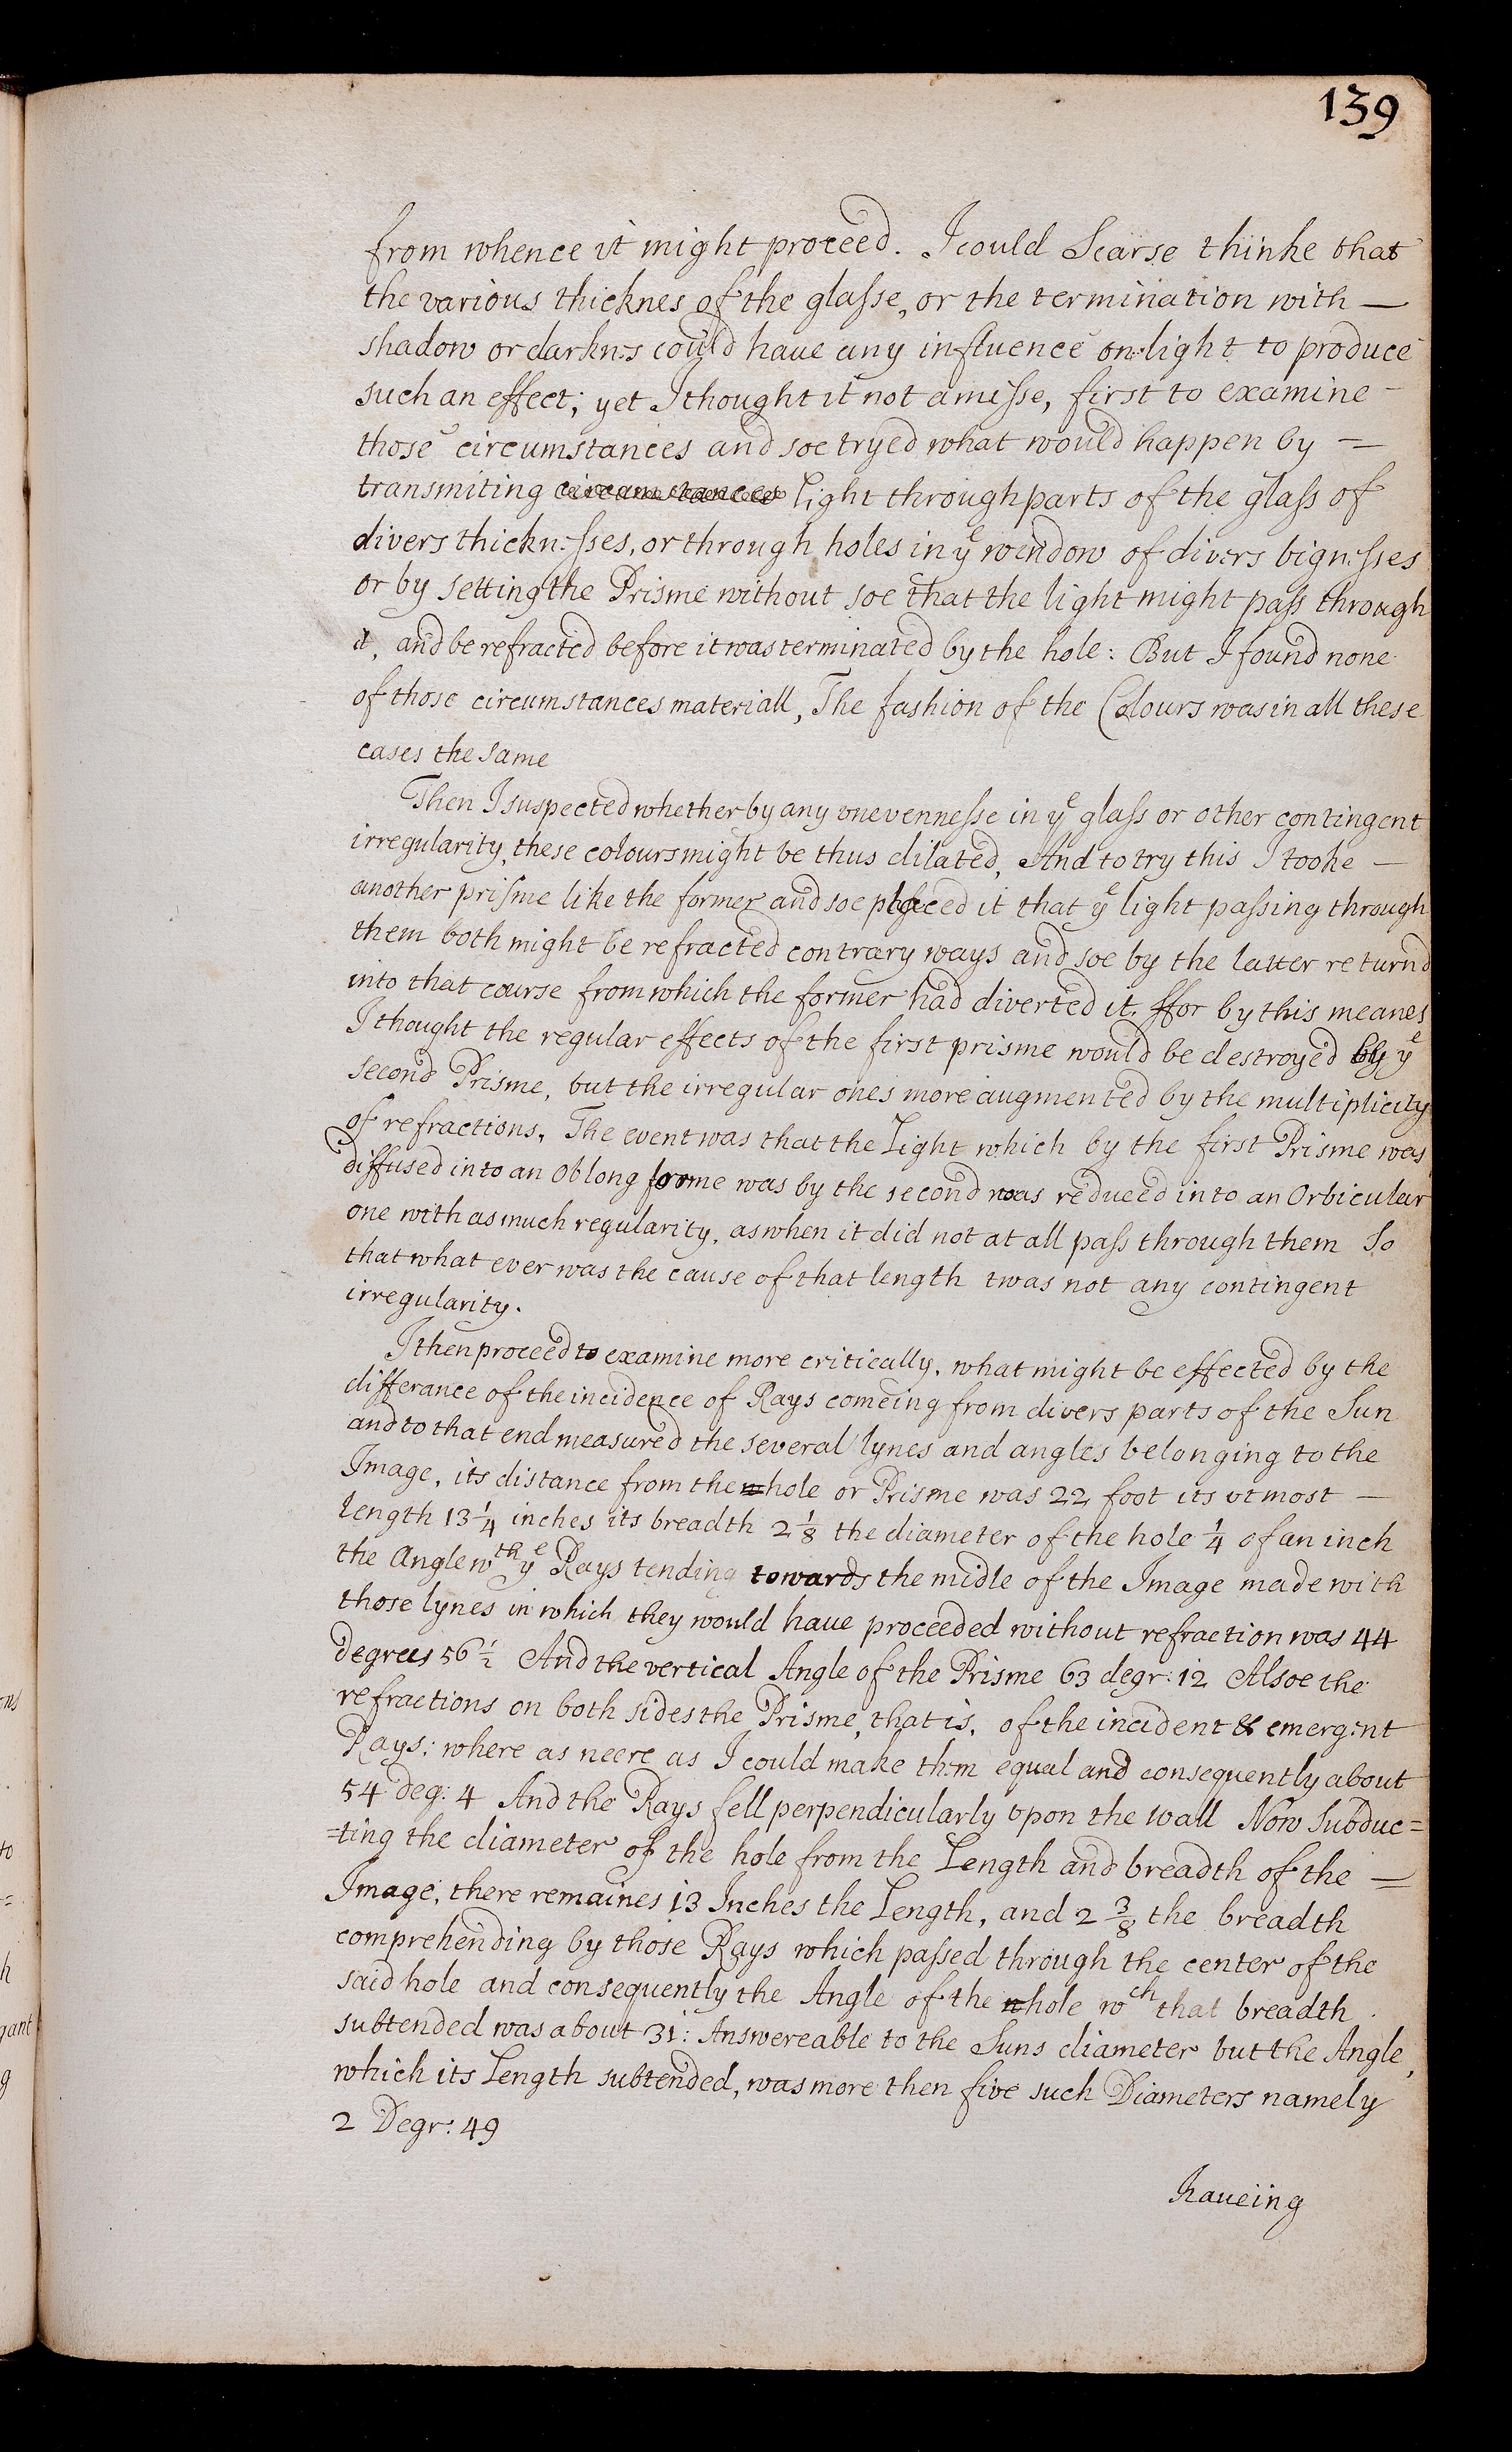 139
from whence it might proceed. I could Scarse thinke that
the various thicknes of the glasse, or the termination with —
shadow or darknes could have any influence on light to produce
such an effect; yet I thought it not amisse, first to examine —
those circumstances and soe tryed what would happen by =
transmiting circumstances light through parts of the glass of
divers thicknesses, or through holes in ye wendow of divers bignesses
or by setting the Prisme without soe that the light might pass through
it, and be refracted before it was terminated by the hole: But I found none
of those circumstances materiall, The fashion of the Colours was in all these
cases the same
Then I suspected whether by any unevennesse in ye glass or other contingent
irregularity, these colours might be thus dilated, And to try this I tooke —
another prisme like the former and soe placed it that ye light passing through
them both might be refracted contrary ways and soe by the latter returnd
into that course from which the former had diverted it. ffor by this meanes
I thought the regular effects of the first prisme would be destroyed by ye
second Prisme, but the irregular ones more augmented by the multiplicity
of refractions, The event was that the Light which by the first Prisme was
diffused into an Oblong forme was by the second was reduced into an Orbicular
one with as much regularity, as when it did not at all pass through them So
that what ever was the cause of that length twas not any contingent
irregularity.
I then proceed to examine more critically, what might be effected by the
differance of the incidence of Rays comeing from divers parts of the Sun
and to that end measured the several lynes and angles belonging to the
Image, its distance from the hole or Prisme was 22 foot its utmost —
length 13 1/4 inches its breadth 2 1/8 the diameter of the hole 1/4 of an inch
the Angle wth ye Rays tending towards the midle of the Image made with
those lynes in which they would have proceeded without refraction was 44
degrees 56 1/2 And the vertical Angle of the Prisme 63 degr: 12 Alsoe the
refractions on both sides the Prisme, that is, of the incident & emergent
Rays: where as neere as I could make them equal and consequently about
54 deg: 4 And the Rays fell perpendicularly upon the wall Now Subduc=
=ting the diameter of the hole from the Length and breadth of the =
Image, there remaines 13 Inches the Length, and 2 3/8 the breadth
comprehending by those Rays which passed through the center of the
said hole and consequently the Angle of the hole wch that breadth
subtended was about 31: Answereable to the Suns diameter but the Angle,
which its Length subtended, was more then five such Diameters namely
2 Degr: 49
haueing
ons
to
=
h
gant
g